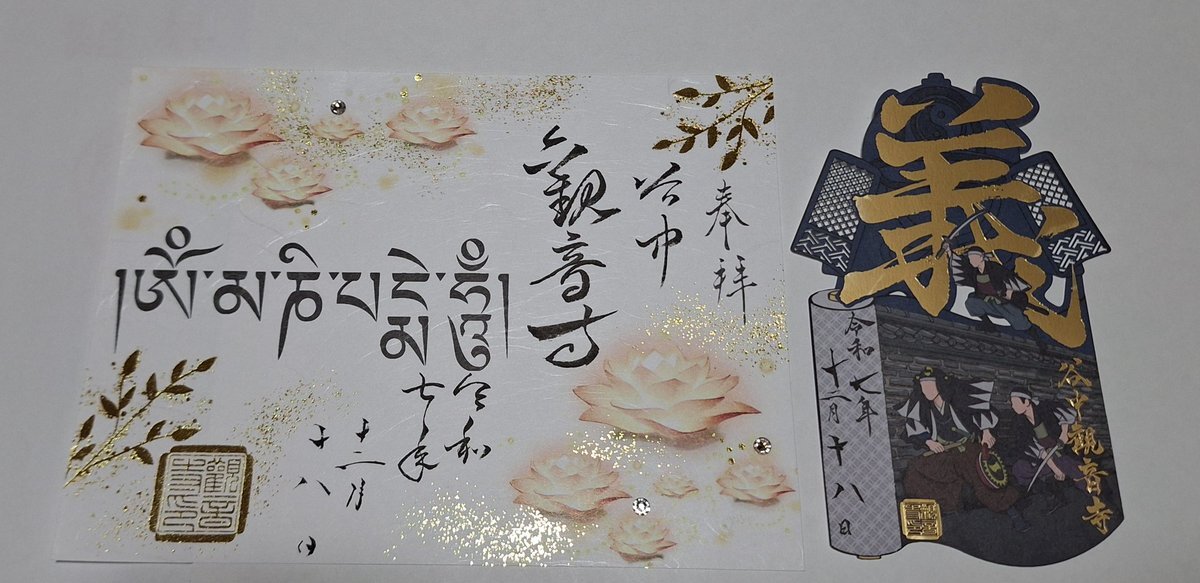 奉拝
谷中
観音寺
།ཨོཾ་མ་ཎི་པ་དྨེ་ཧཱུྃ།
令和
七年
十二月
十八日
義
谷中観音寺
令和七年
十二月十八日